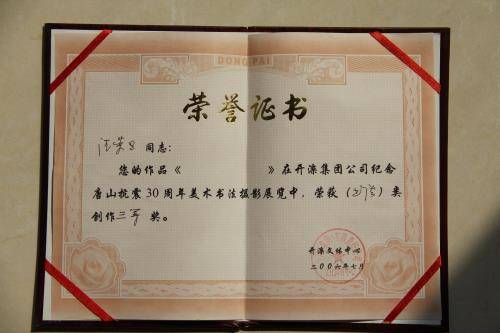 DONG PAI
荣誉证书
同志：
您的作品《 》在开滦集团公司纪念
唐山抗震30周年美术书法摄影展览中，荣获（书法）类
创作三等奖。
开滦文体中心
二00六年七月